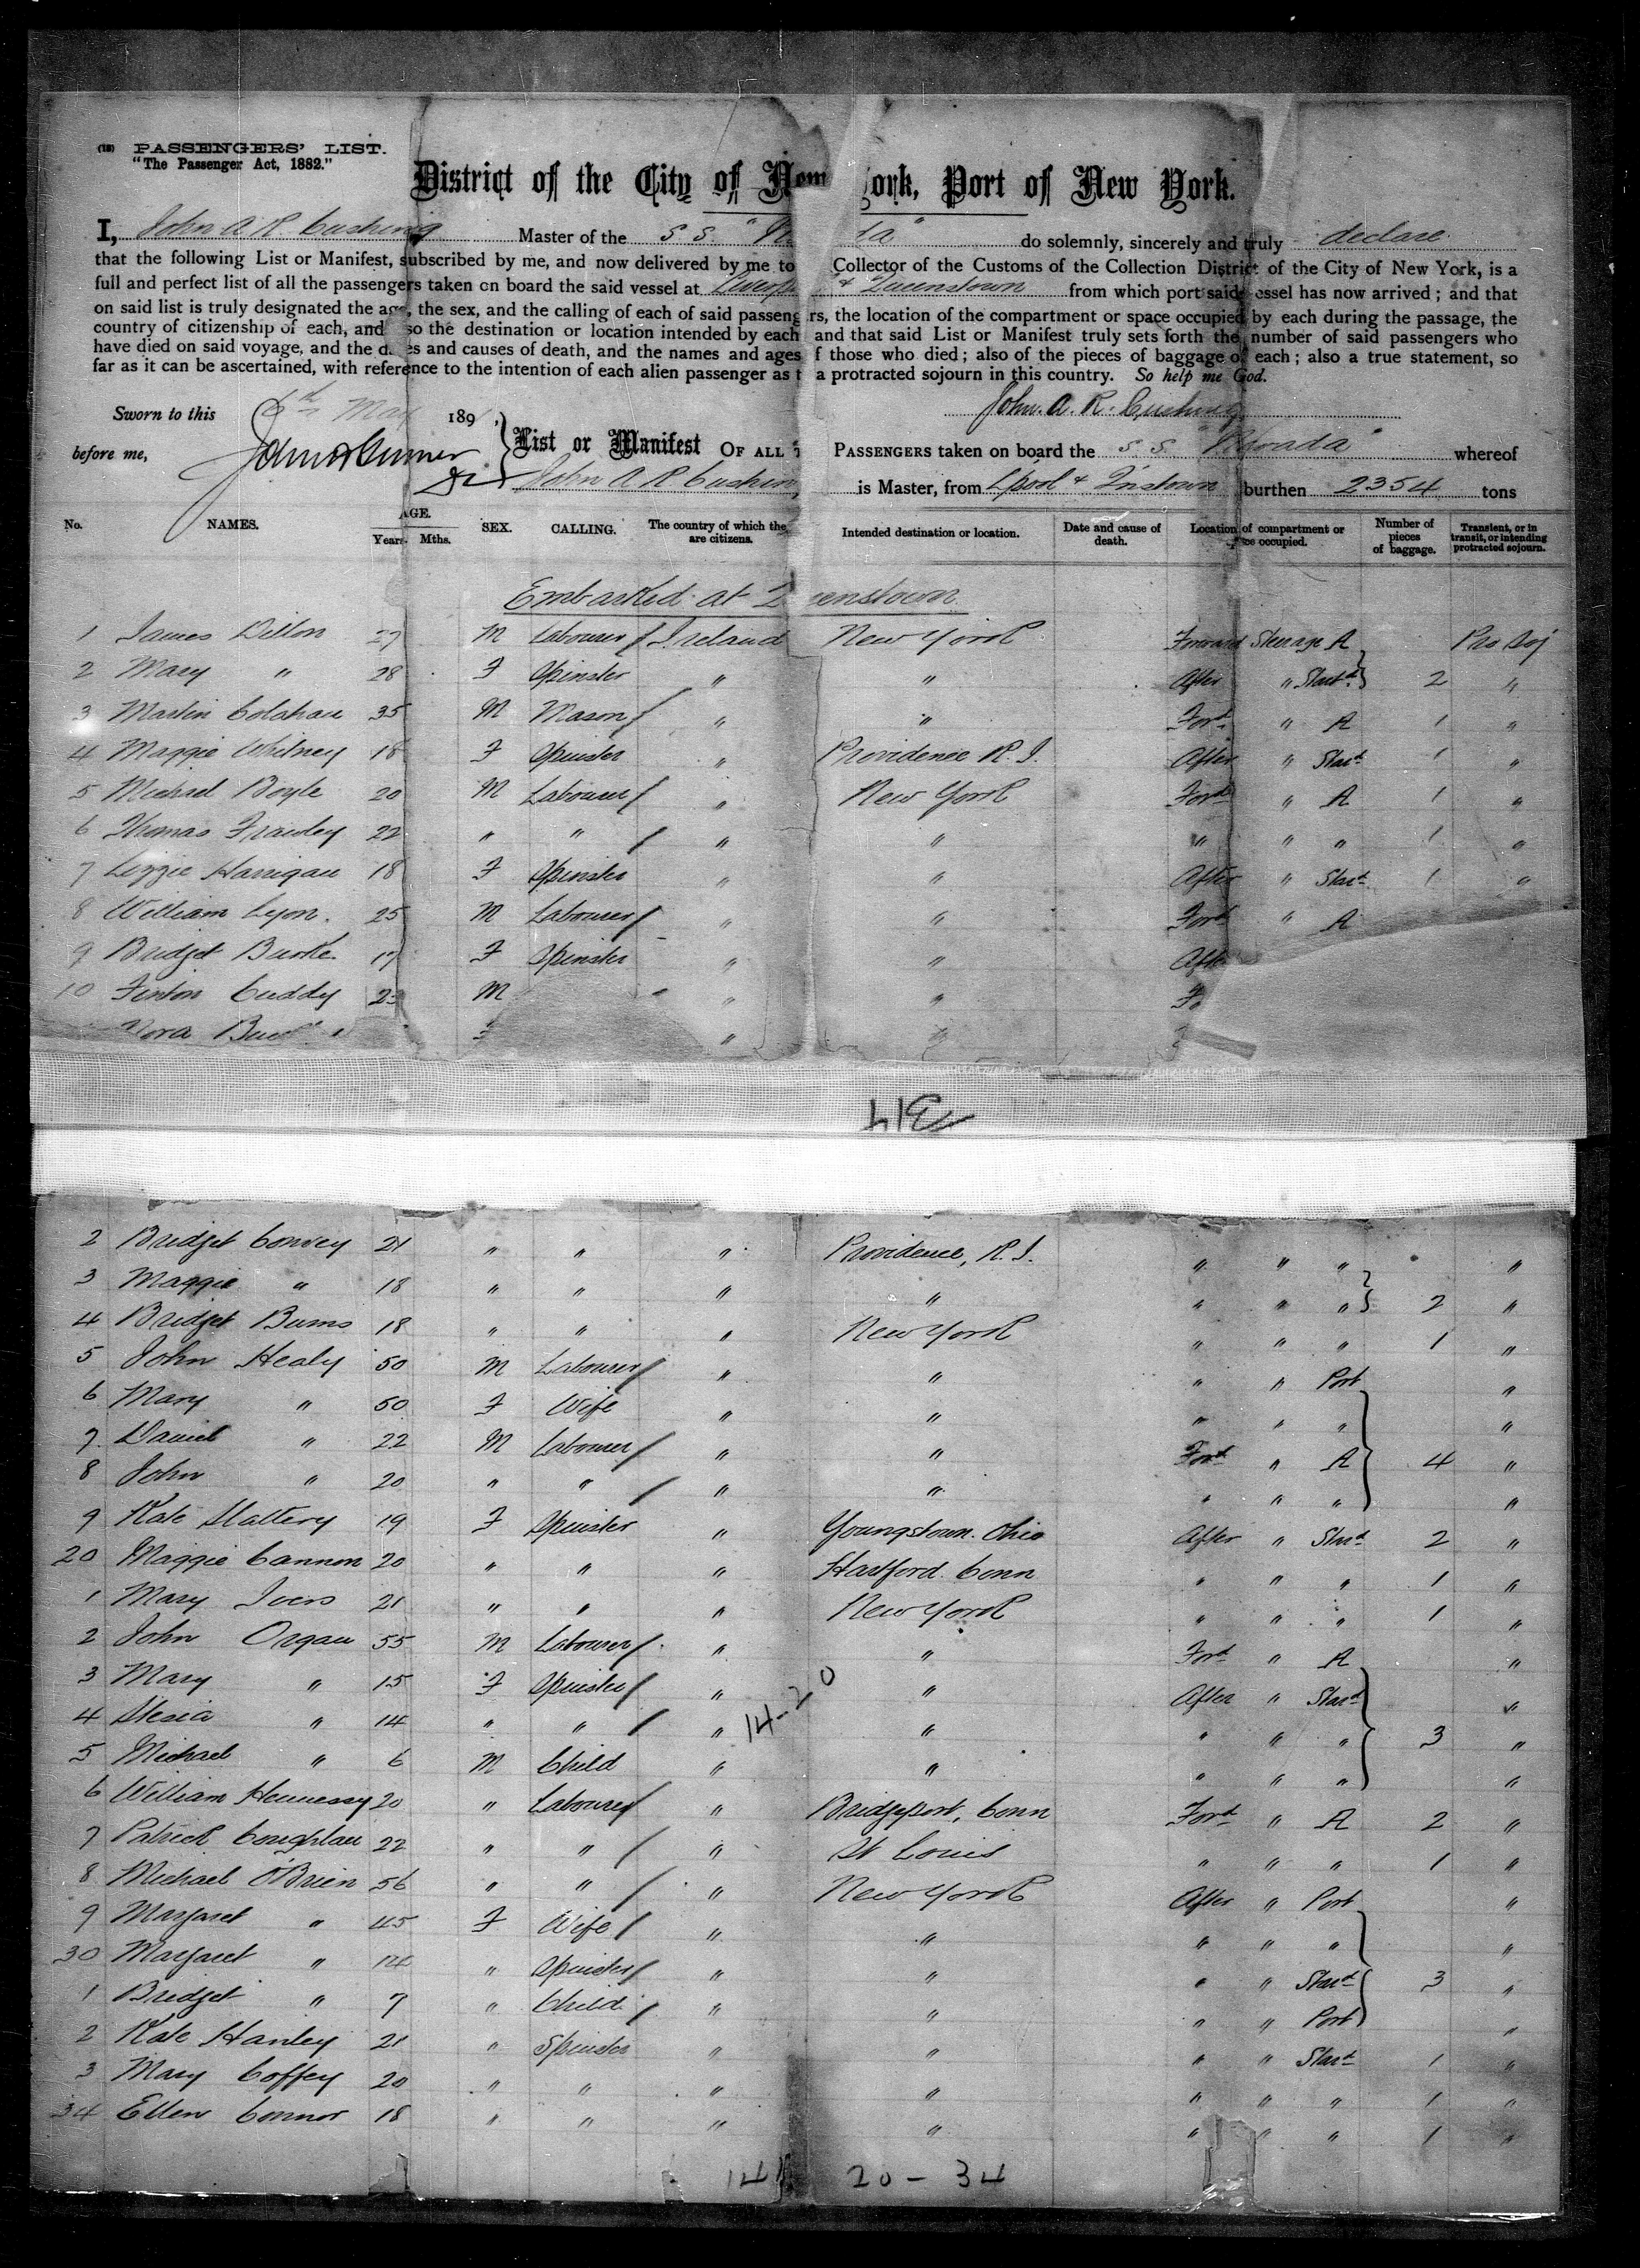 (18) PASSENGERS' LIST.
"The Passenger Act, 1882."
District of the City of New ork, Port of New York.
I, John A R. Cushing Master of the S S. " da" do solemnly, sincerely and truly declare
that the following List or Manifest, subscribed by me, and now delivered by me to Collector of the Customs of the Collection District of the City of New York, is a
full and perfect list of all the passengers taken on board the said vessel at Liverp & Queenstown from which port said essel has now arrived; and that
on said list is truly designated the age, the sex, and the calling of each of said passeng rs, the location of the compartment or space occupied by each during the passage, the
country of citizenship of each, and so the destination or location intended by each and that said List or Manifest truly sets forth the number of said passengers who
have died on said voyage, and the d es and causes of death, and the names and ages f those who died; also of the pieces of baggage of each; also a true statement, so
far as it can be ascertained, with reference to the intention of each alien passenger as t a protracted sojourn in this country. So help me God.
Sworn to this 6th May 189 John. A. R. Cushing
before me, List or Manifest OF ALL PASSENGERS taken on board the S S. "Nevada" whereof
John A R Cushin is Master, from L'pool & Q'nstown burthen 2354 tons
No. NAMES. AGE. Years. Mths. SEX. CALLING. The country of which the are citizens. Intended destination or location. Date and cause of death. Location of compartment or ce occupied. Number of pieces of baggage. Transient, or in transit, or intending protracted sojourn.
Embarked at Q eenstown
1 James Dillon 27 M Labourer / Ireland New York Forward Steerage A Pro Soj
2 Mary " 28 F Spinster " " After " Starbd } 2 "
3 Martin Colahan 35 M Mason / " " Ford " A 1 "
4 Maggie Whitney 18 F Spinster " Providence R. I. After " Stard 1 "
5 Michael Boyle 20 M Labourer / " New York Ford " A 1 "
6 Thomas Frawley 22 " " / " " " " " 1 "
7 Lizzie Harrigan 18 F Spinster " " After " Stard 1 "
8 William Lyon. 25 M Labourer / " " Ford " A
9 Bridget Burke. 17 F Spinster " " Afte
10 Finton Cuddy 23 M " " Fo
Nora F "
317
2 Bridget Convey 21 " " " Providence, R. I. " " " "
3 Maggie " 18 " " " " " " " } 2 "
4 Bridget Burns 18 " " " New York " " " 1 "
5 John Healy 50 M Labourer / " " " " Port "
6 Mary " 50 F Wife " " " " " "
7 Daniel " 22 M Labourer / " " Ford " A 4 "
8 John " 20 " " / " " " " " "
9 Kate Slattery 19 F Spinster " Youngstown. Ohio After " Stard 2 "
20 Maggie Cannon 20 " " " Hartford. Conn " " " 1 "
1 Mary Ivers 21 " " " New York " " " 1 "
2 John Organ 55 M Labourer / " " Ford " A "
3 Mary " 15 F Spinster / " " After " Stard "
4 Stesia " 14 " " / " 14-20 " " " " 3 "
5 Michael " 6 M Child " " " " " "
6 William Hennessy 20 " Labourer / " Bridgeport, Conn Ford " A 2 "
7 Patrick Coughlan 22 " " / " St Louis " " " 1 "
8 Michael O'Brien 56 " " / " New York After " Port "
9 Margaret " 45 F Wife / " " " " " "
30 Margaret " 14 " Spinster / " " " " Stard 3 "
1 Bridget " 7 " Child / " " " " Port "
2 Kate Hanley 21 " Spinster " " " " Stard 1 "
3 Mary Coffey 20 " " " " " " " 1 "
34 Ellen Connor 18 " " " " " " " 1 "
14 20 - 34